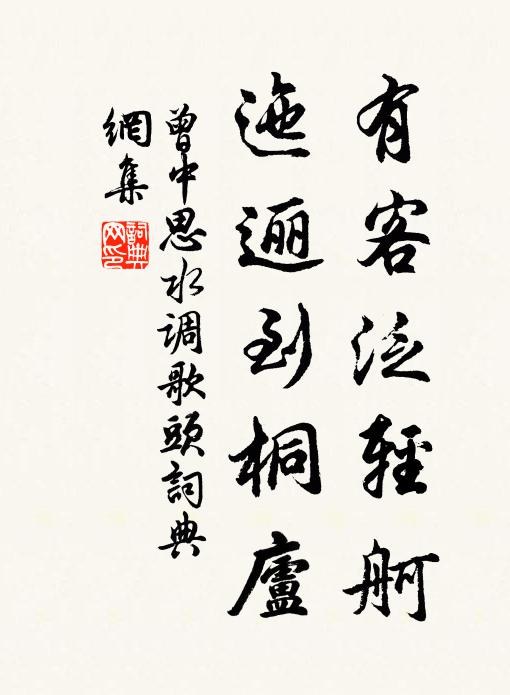 有客泛輕舸
迤逦到桐廬
曾中思水调歌頭詞典
網集
詞典网印